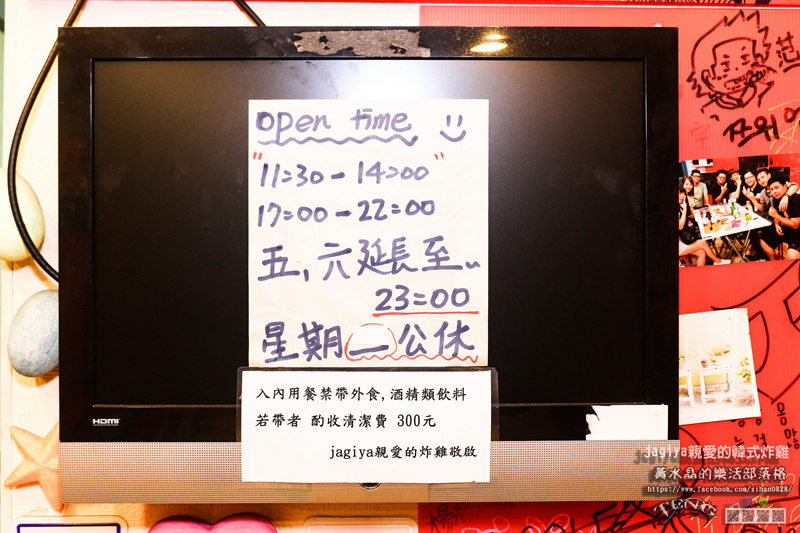 open time
"11:30-14:00"
17:00-22:00
五,六延長至~
23:00
星期二公休
入內用餐禁帶外食,酒精類飲料
若帶者 酌收清潔費 300元
jagiya親愛的炸雞敬啟
HDMI
jagiya親愛的韓式炸雞
黃水晶的樂活部落格
https://www.facebook.com/zihan0828/
TENG